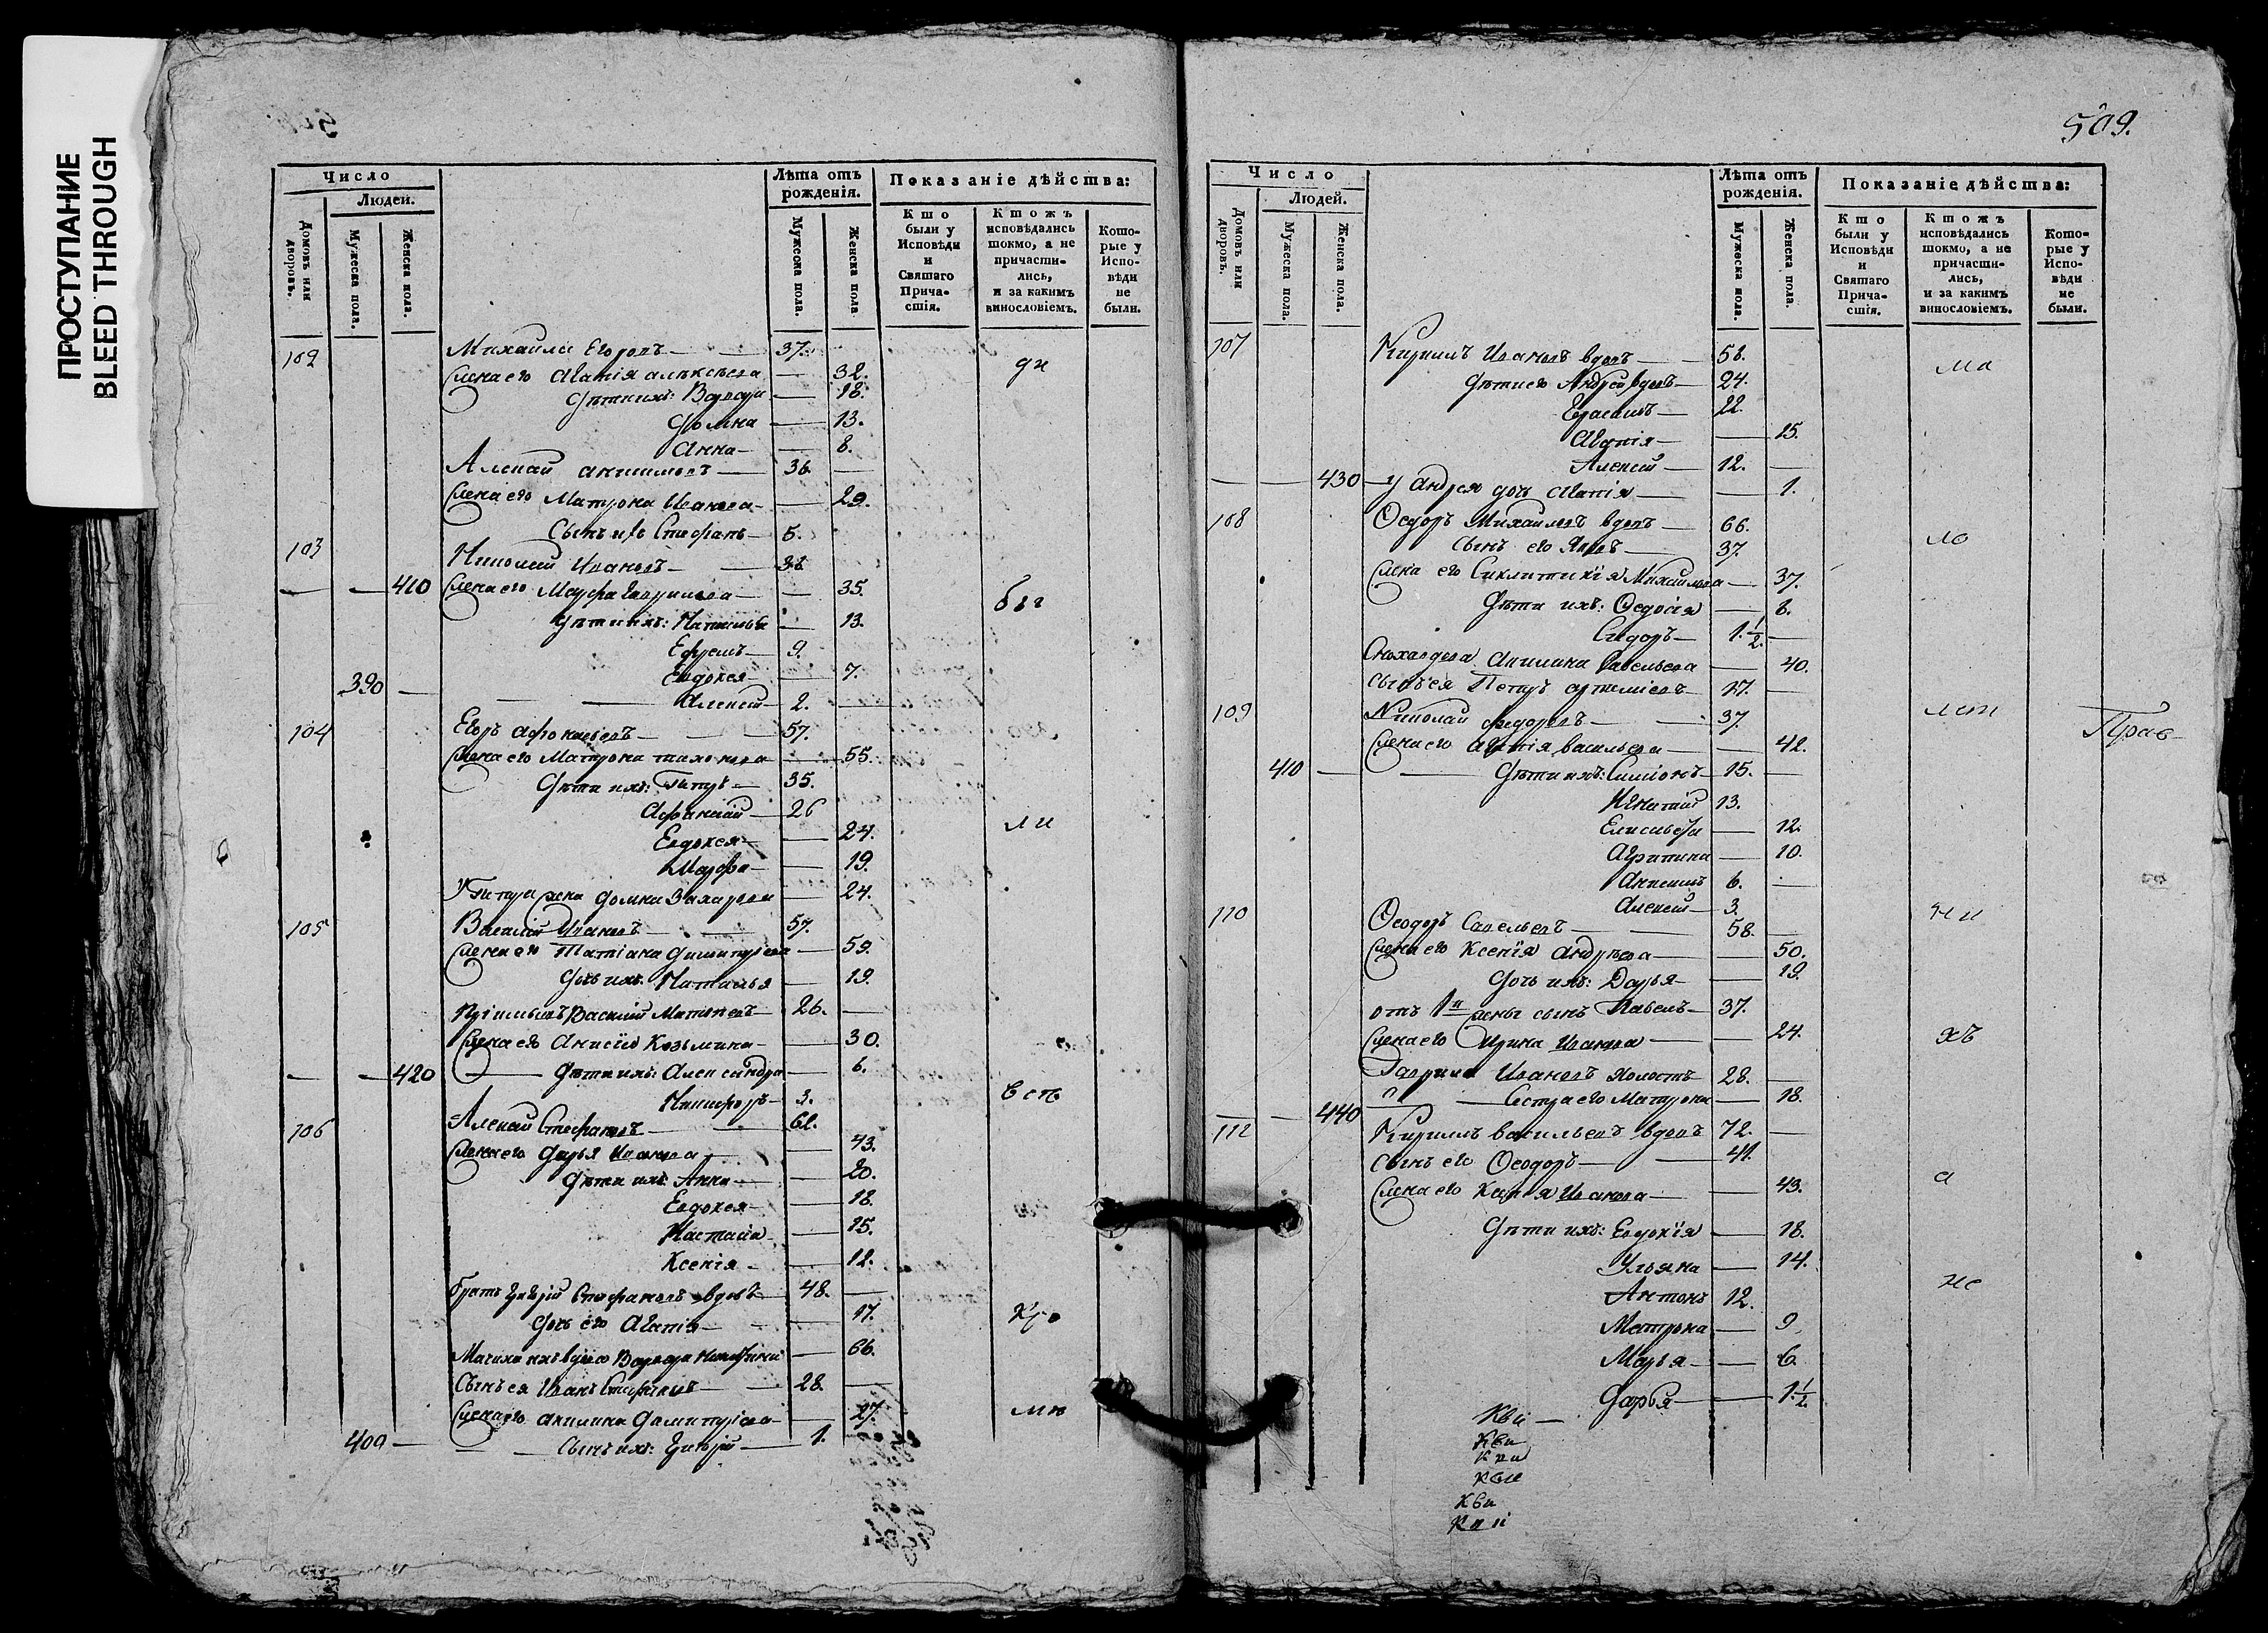 ПРОСТУПАНИЕ
BLEED THROUGH
Число
Людей.
Домовъ или дворовъ.
Мужеска пола.
Женска пола.
Лѣта отъ рожденія.
Мужеска пола.
Женска пола.
Показаніе дѣйства:
Кто были у Исповѣди и Святаго Прича-стія.
Ктожъ исповѣдались токмо, а не причасти-лись, и за какимъ винословіемъ.
Кото-рые у Испо-вѣди не были.
102 Михайла Егоровъ 37.
жена его Агапія алексѣева 32.
дѣти ихъ: Варвара 18.
Домна 13.
Анна 8.
Алексей анисимовъ 36.
жена его Матрона Иванова 29.
Сынъ ихъ Стефанъ 5.
103 Николай Ивановъ
410 жена его Марфа Гаврилова 35.
дѣти ихъ: Наталья 13.
Ефремъ 9.
Евдокея 7.
390 Алексей 2.
104 Егоръ Афонасьевъ 57.
жена его Матрона 55.
дѣти ихъ: Петръ 35.
Афанасий 26
Евдокея 24.
Марфа 19.
У Петра жена Домна Захарова 24.
105 Василій Ивановъ 57.
жена его Татіана Димитріева 59.
дочь ихъ: Наталья 19.
Василій 26.
жена его Анисія Козьмина 30.
420 дѣти ихъ: Александра 6.
Никифоръ 3.
106 Алексей Стефановъ 62.
жена его Дарья Иванова 43.
дѣти ихъ: Анна 20.
Евдокея 18.
Настасіа 15.
Ксенія 12.
братъ Григорій Стефановъ вдовъ 48.
дочь его Агапія 17.
Мачиха ихъ вдова Варвара 66.
Сынъ ея Иванъ Стефановъ 28.
жена его Акилина Димитріева 27.
400 Сынъ ихъ: Григорій 1.
ди
бы
ли
вст
кро
мѣ
509.
Число
Людей.
Домовъ или дворовъ.
Мужеска пола.
Женска пола.
Лѣта отъ рожденія.
Мужеска пола.
Женска пола.
Показаніе дѣйства:
Кто были у Исповѣди и Святаго Прича-стія.
Ктожъ исповѣдались токмо, а не причасти-лись, и за какимъ винословіемъ.
Кото-рые у Испо-вѣди не были.
107 Кирилъ Ивановъ вдовъ 58.
дѣти его Андрей вдовъ 24.
Герасимъ 22.
Агапія 15.
Алексей 12.
430 у Андрея дочь Агапія 1.
108 Ѳедоръ Михайловъ вдовъ 66.
Сынъ его Яковъ 37.
жена его Сиклитикія Михайлова 37.
дѣти ихъ: Ѳедосія 8.
Сидоръ 1.1/2.
Сноха вдова Акилина Савельева 40.
Сынъ ея Петръ артеміевъ 17.
109 Николай федоровъ 37.
жена его Агапія васильева 42.
410 дѣти ихъ: Симіонъ 15.
Игнатий 13.
Елисавета 12.
Агрипина 10.
Анисимъ 6.
Алексей 3.
110 Ѳеодоръ Савельевъ 58.
жена его Ксенія Андрѣева 50.
дочь ихъ: Дарья 19.
отъ 1й жены сынъ Павелъ 37.
жена его Ирина Иванова 24.
Гаврила Ивановъ холостъ 28.
Сестра его Матрона 18.
440
112 Кирилъ васильевъ вдовъ 72.
Сынъ его Ѳеодоръ 41.
жена его Иванова 43.
дѣти ихъ: Евдокія 18.
Ульяна 14.
Антонъ 12.
Матрона 9.
Марья 6.
Дарья 1.1/2
ма
ло
лет
ни
хъ
а
не
Прав